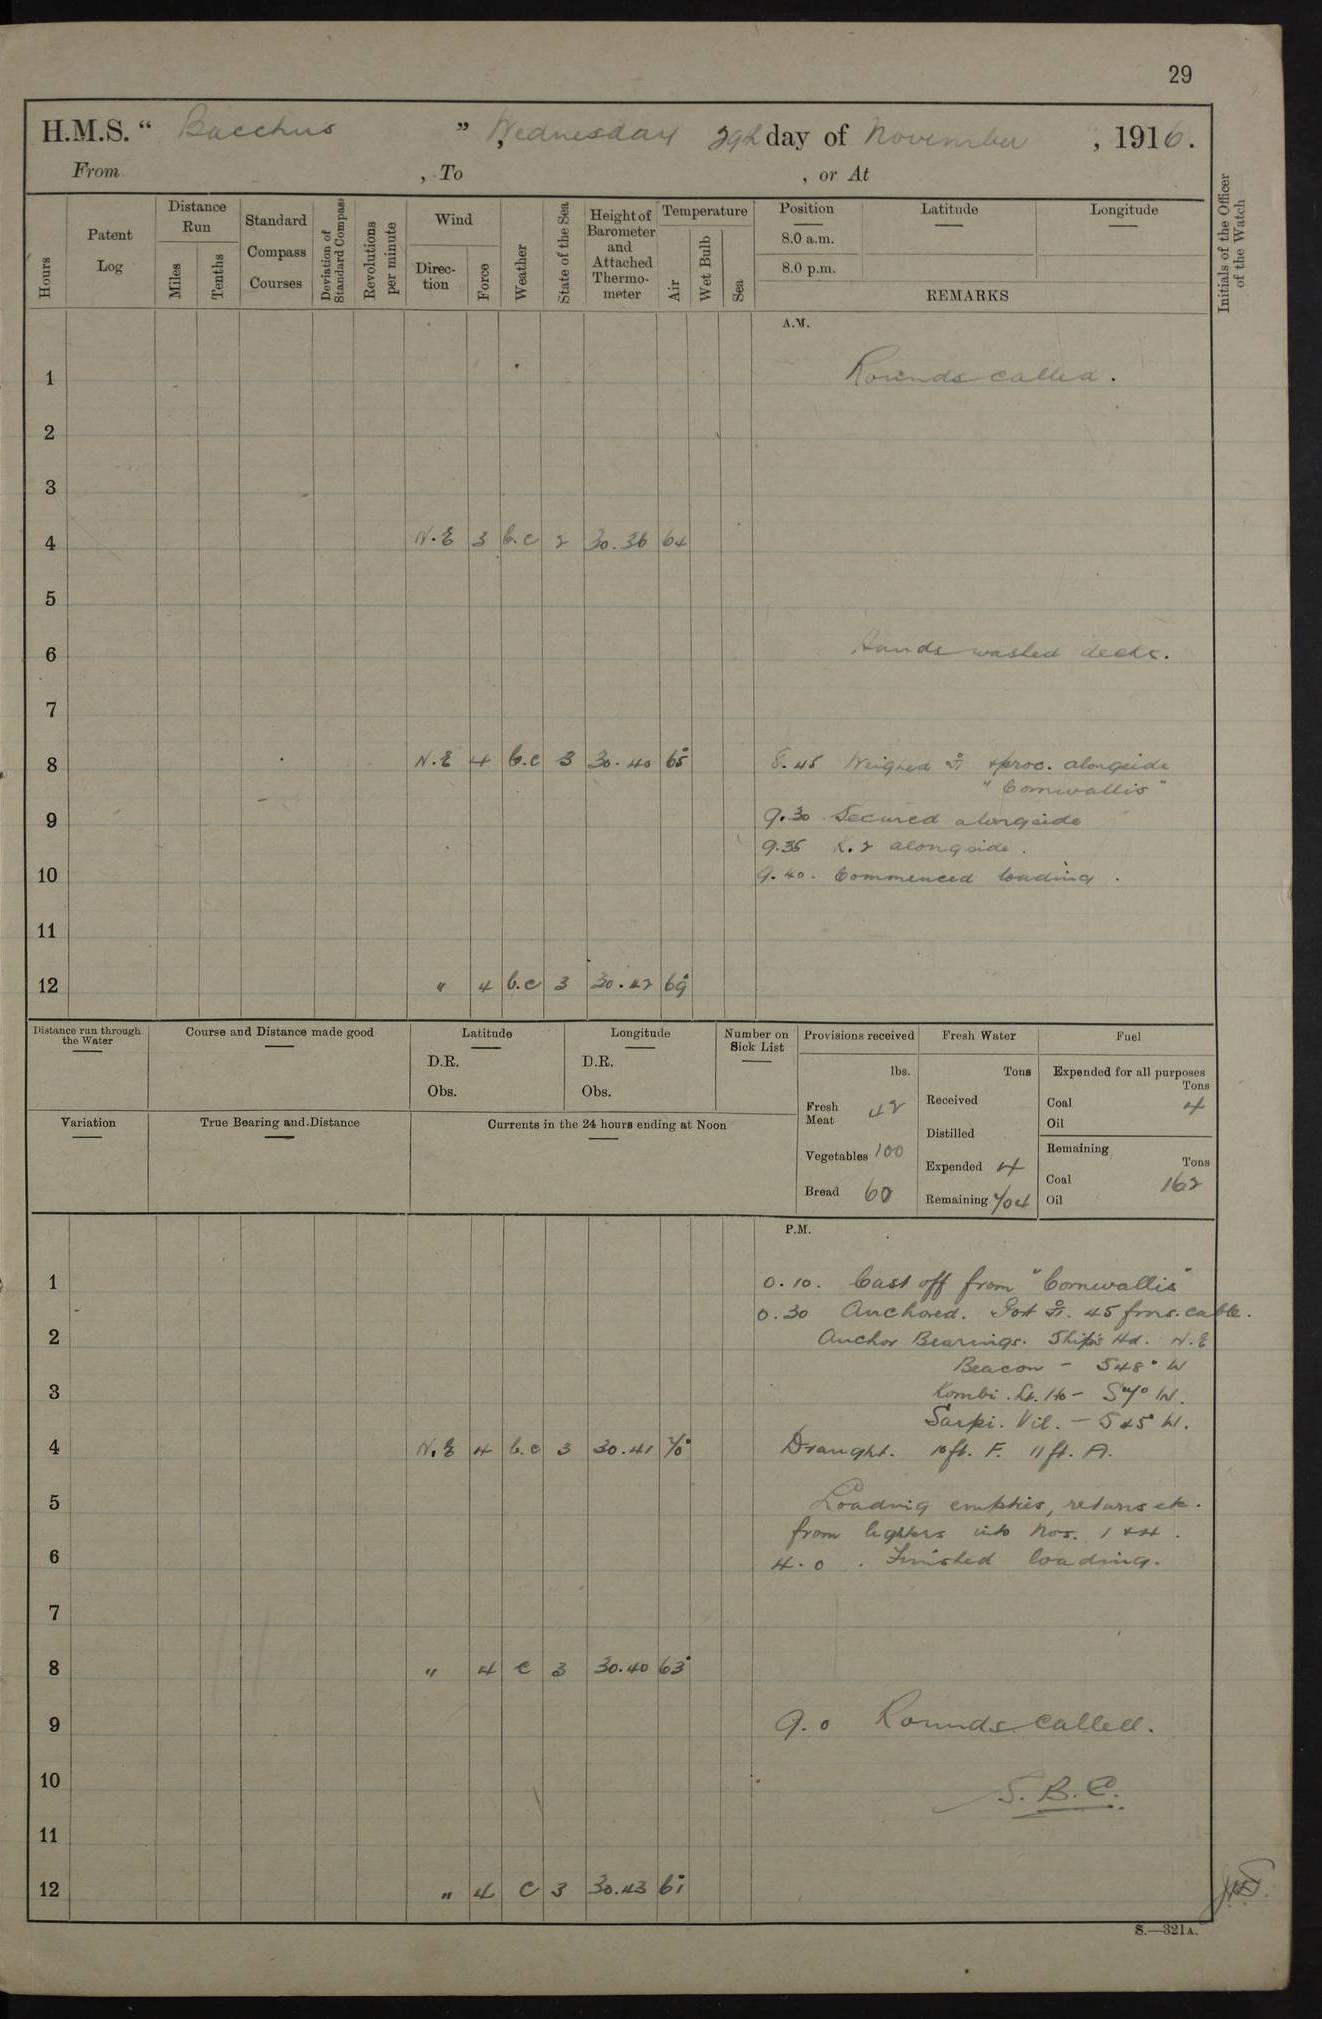 29
H.M.S. “ Bacchus ” , Wednesday 29th day of November , 1916.
From , To , or At
Hours
Patent Log
Distance Run
Miles
Tenths
Standard Compass Courses
Deviation of Standard Compass
Revolutions per minute
Wind
Direction
Force
Weather
State of the Sea
Height of Barometer and Attached Thermometer
Temperature
Air
Wet Bulb
Sea
Position
Latitude
Longitude
8.0 a.m.
8.0 p.m.
REMARKS
Initials of the Officer of the Watch
A.M.
1 Rounds called.
2
3
4 N.E 3 b.c 2 30.36 64
5
6 Hands washed decks.
7
8 N.E 4 b.c 3 30.40 65° 8.45 Weighed & proc. alongside
"Cornwallis"
9 9.30 Secured alongside
9.35 K.2 alongside.
10 9.40. Commenced loading.
11
12 " 4 b.c 3 30.42 69°
Distance run through the Water
Course and Distance made good
Latitude
D.R.
Obs.
Longitude
D.R.
Obs.
Number on Sick List
Variation
True Bearing and Distance
Currents in the 24 hours ending at Noon
Provisions received
lbs.
Fresh Meat 42
Vegetables 100
Bread 60
Fresh Water
Tons
Received
Distilled
Expended 4
Remaining 704
Fuel
Expended for all purposes
Tons
Coal 4
Oil
Remaining
Tons
Coal 162
Oil
P.M.
1 0.10. Cast off from "Cornwallis"
0.30 Anchored. Port 45 fms. cable.
2 Anchor Bearings. Ship's Hd. N.E
Beacon - S48° W
3 Kombi. Lt. Ho - S W.
Sarpi. Vil. - S45° W.
4 N.E 4 b.c 3 30.41 70° Draught. 10ft. F. 11ft. A.
5 Loading empties, returns etc.
from lighters into Nos. 1 & 4.
6 4.0. Finished loading.
7
8 " 4 c 3 30.40 63°
9 9.0 Rounds called.
10 S.B.C.
11
12 " 4 c 3 30.43 61°
S.—321A.